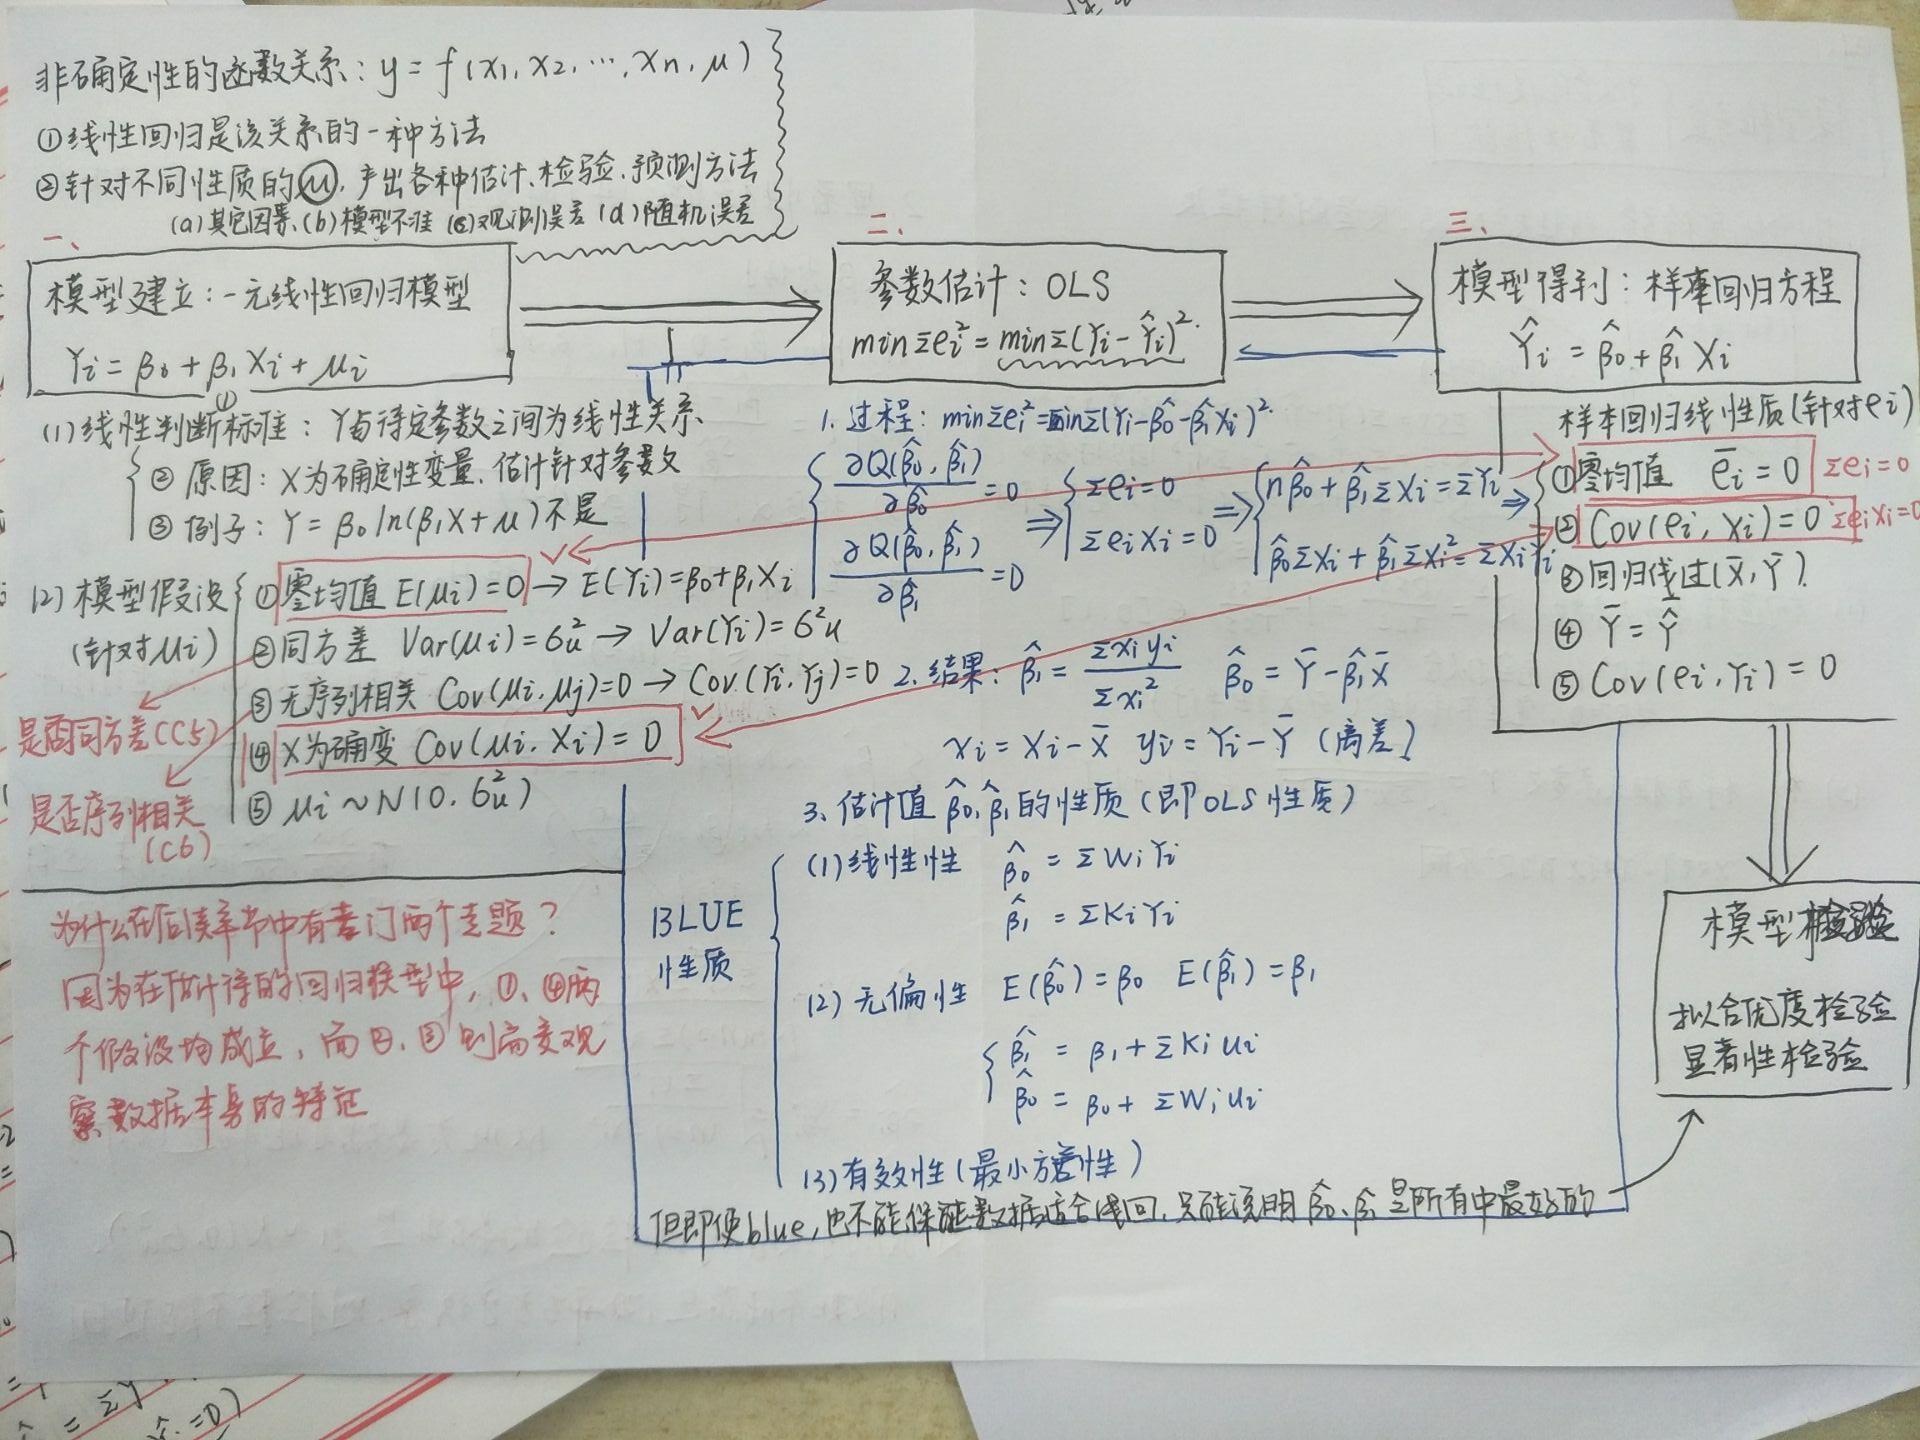 非确定性的函数关系：y = f(x₁, x₂, …, xn, μ)
①线性回归是该关系的一种方法
②针对不同性质的μ，产出各种估计、检验、预测方法
(a)其它因素、(b)模型不准 (c)观测误差 (d)随机误差
一、
模型建立：一元线性回归模型
Yi = β₀ + β₁Xi + μi
(1)线性判断标准：①Y与待定参数之间为线性关系
②原因：X为确定性变量，估计针对参数
③例子：Y = β₀ln(β₁X + μ)不是
(2)模型假设
(针对μi)
①零均值 E(μi) = 0 → E(Yi) = β₀ + β₁Xi
②同方差 Var(μi) = 6²u → Var(Yi) = 6²u
③无序列相关 Cov(μi, μj) = 0 → Cov(Yi, Yj) = 0
④X为确变 Cov(μi, Xi) = 0
⑤μi ~ N(0, 6²u)
是否同方差(C5)
是否序列相关
(C6)
为什么在后续章节中有专门两个专题？
因为在估计得的回归模型中，①、④两
个假设均成立，而②、③则需要观
察数据本身的特征
二、
参数估计：OLS
minΣei² = minΣ(Yi - Ŷi)²
1. 过程：minΣei² = minΣ(Yi - β̂₀ - β̂₁Xi)²
∂Q(β̂₀, β̂₁)/∂β̂₀ = 0
∂Q(β̂₀, β̂₁)/∂β̂₁ = 0
⇒ Σei = 0
Σei Xi = 0
⇒ nβ̂₀ + β̂₁ΣXi = ΣYi ⇒
β̂₀ΣXi + β̂₁ΣXi² = ΣXiYi
2. 结果：β̂₁ = Σxi yi / Σxi² β̂₀ = Ȳ - β̂₁X̄
xi = Xi - X̄ yi = Yi - Ȳ (离差)
3、估计值 β̂₀, β̂₁的性质（即OLS性质）
BLUE
性质
(1)线性性 β̂₀ = ΣWiYi
β̂₁ = ΣKiYi
(2)无偏性 E(β̂₀) = β₀ E(β̂₁) = β₁
β̂₁ = β₁ + ΣKiui
β̂₀ = β₀ + ΣWiui
(3)有效性（最小方差性）
但即使blue，也不能保证数据适合线回，只能说明β̂₀、β̂₁是所有中最好的
三、
模型得到：样本回归方程
Ŷi = β̂₀ + β̂₁Xi
样本回归线性质(针对ei)
①零均值 ēi = 0 Σei = 0
②Cov(ei, Xi) = 0 ΣeiXi = 0
③回归线过(X̄, Ȳ)
④Ȳ = Ŷ̄
⑤Cov(ei, Yi) = 0
模型检验
拟合优度检验
显著性检验